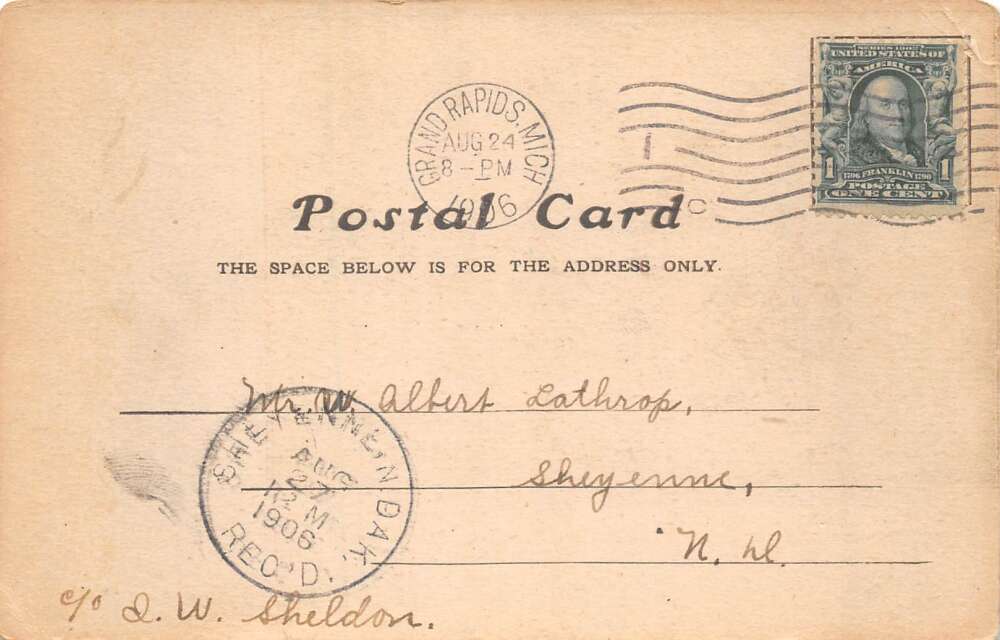 SERIES 1902
UNITED STATES OF
AMERICA
1 1706 FRANKLIN 1790 1
POSTAGE
ONE CENT
GRAND RAPIDS, MICH
AUG 24
8 - PM
1906
1
C
Postal Card
THE SPACE BELOW IS FOR THE ADDRESS ONLY.
Mr. W. Albert Lathrop,
Sheyenne,
N. D.
SHEYENNE, N. DAK.
AUG
27
12 M
1906
REC'D.
c/o I. W. Sheldon.